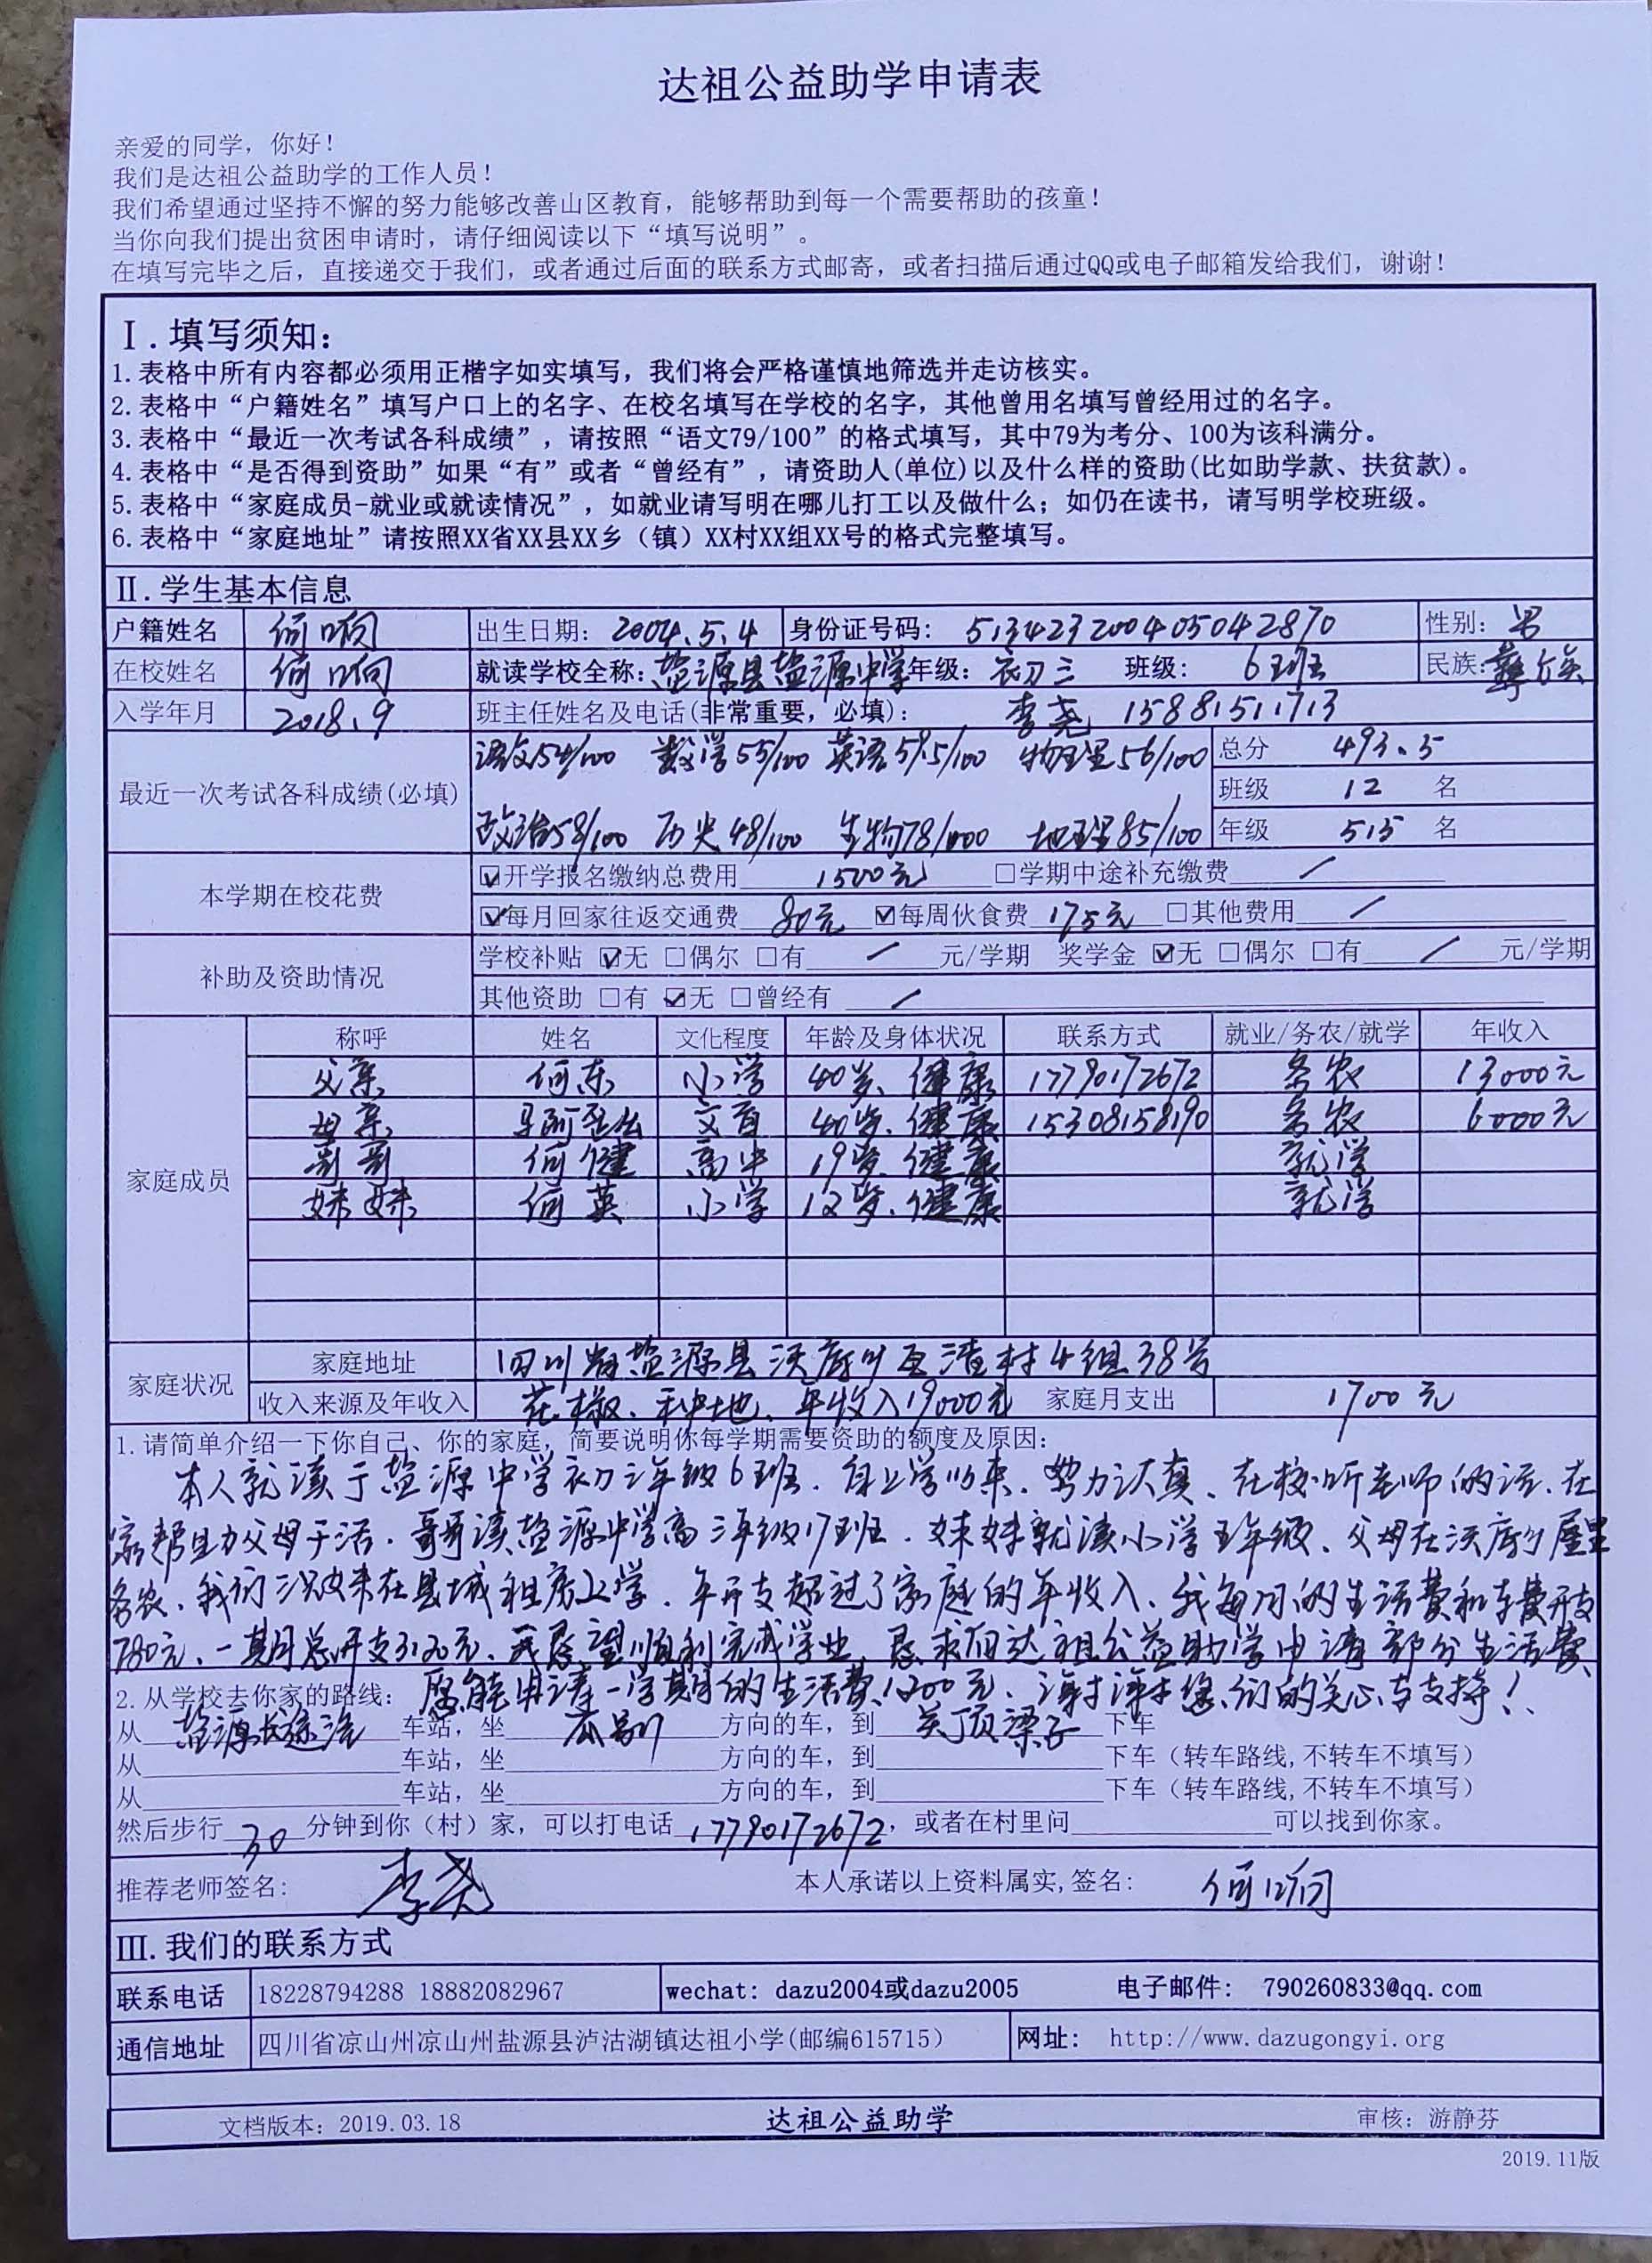 达祖公益助学申请表
亲爱的同学，你好！
我们是达祖公益助学的工作人员！
我们希望通过坚持不懈的努力能够改善山区教育，能够帮助到每一个需要帮助的孩童！
当你向我们提出贫困申请时，请仔细阅读以下“填写说明”。
在填写完毕之后，直接递交于我们，或者通过后面的联系方式邮寄，或者扫描后通过QQ或电子邮箱发给我们，谢谢！
Ⅰ.填写须知：
1.表格中所有内容都必须用正楷字如实填写，我们将会严格谨慎地筛选并走访核实。
2.表格中“户籍姓名”填写户口上的名字、在校名填写在学校的名字，其他曾用名填写曾经用过的名字。
3.表格中“最近一次考试各科成绩”，请按照“语文79/100”的格式填写，其中79为考分、100为该科满分。
4.表格中“是否得到资助”如果“有”或者“曾经有”，请资助人(单位)以及什么样的资助(比如助学款、扶贫款)。
5.表格中“家庭成员-就业或就读情况”，如就业请写明在哪儿打工以及做什么；如仍在读书，请写明学校班级。
6.表格中“家庭地址”请按照XX省XX县XX乡（镇）XX村XX组XX号的格式完整填写。
Ⅱ.学生基本信息
户籍姓名 何响 出生日期：2004.5.4 身份证号码：513423200405042870 性别：男
在校姓名 何响 就读学校全称：盐源县盐源中学 年级：初三 班级：6班 民族：彝族
入学年月 2018.9 班主任姓名及电话(非常重要，必填)：李尧 15881511713
最近一次考试各科成绩(必填) 语文54/100 数学55/100 英语59.5/100 物理56/100 总分 493.5
班级 12 名
政治58/100 历史48/100 生物78/100 地理85/100 年级 515 名
本学期在校花费 ☑开学报名缴纳总费用 1500元 □学期中途补充缴费 /
☑每月回家往返交通费 80元 ☑每周伙食费 175元 □其他费用 /
补助及资助情况 学校补贴 ☑无 □偶尔 □有 / 元/学期 奖学金 ☑无 □偶尔 □有 / 元/学期
其他资助 □有 ☑无 □曾经有 /
家庭成员 称呼 姓名 文化程度 年龄及身体状况 联系方式 就业/务农/就学 年收入
父亲 何东 小学 40岁、健康 17790172672 务农 13000元
母亲 文盲 40岁、健康 15308158190 务农 6000元
哥哥 何健 高中 19岁、健康 就学
妹妹 何英 小学 12岁、健康 就学
家庭状况 家庭地址 四川省盐源县沃底乡 村4组38号
收入来源及年收入 花椒、种地、年收入19000元 家庭月支出 1700元
1.请简单介绍一下你自己、你的家庭，简要说明你每学期需要资助的额度及原因：
本人就读于盐源中学初三年级6班．自上学以来．努力认真、在校听老师的话．在
家帮助父母干活．哥哥读盐源中学高三年级17班．妹妹就读小学五年级、父母在沃底乡屋里
务农、我们三 在县城租房上学．年开支超过了家庭的年收入、我每月的生活费和车费开支
780元、一期总开支3120元、我 望顺利完成学业，恳求向达祖公益助学申请部分生活费、
愿能申请一学期的生活费1200元、谢谢您们的关心与支持！
2.从学校去你家的路线：
从 盐源长途汽 车站，坐 瓜别 方向的车，到 关顶梁子 下车
从 车站，坐 方向的车，到 下车（转车路线,不转车不填写）
从 车站，坐 方向的车，到 下车（转车路线,不转车不填写）
然后步行 30 分钟到你（村）家，可以打电话 17790172672，或者在村里问 可以找到你家。
推荐老师签名：李尧 本人承诺以上资料属实,签名：何响
Ⅲ.我们的联系方式
联系电话 18228794288 18882082967 wechat: dazu2004或dazu2005 电子邮件: 790260833@qq.com
通信地址 四川省凉山州凉山州盐源县泸沽湖镇达祖小学(邮编615715) 网址: http://www.dazugongyi.org
文档版本：2019.03.18 达祖公益助学 审核：游静芬
2019.11版